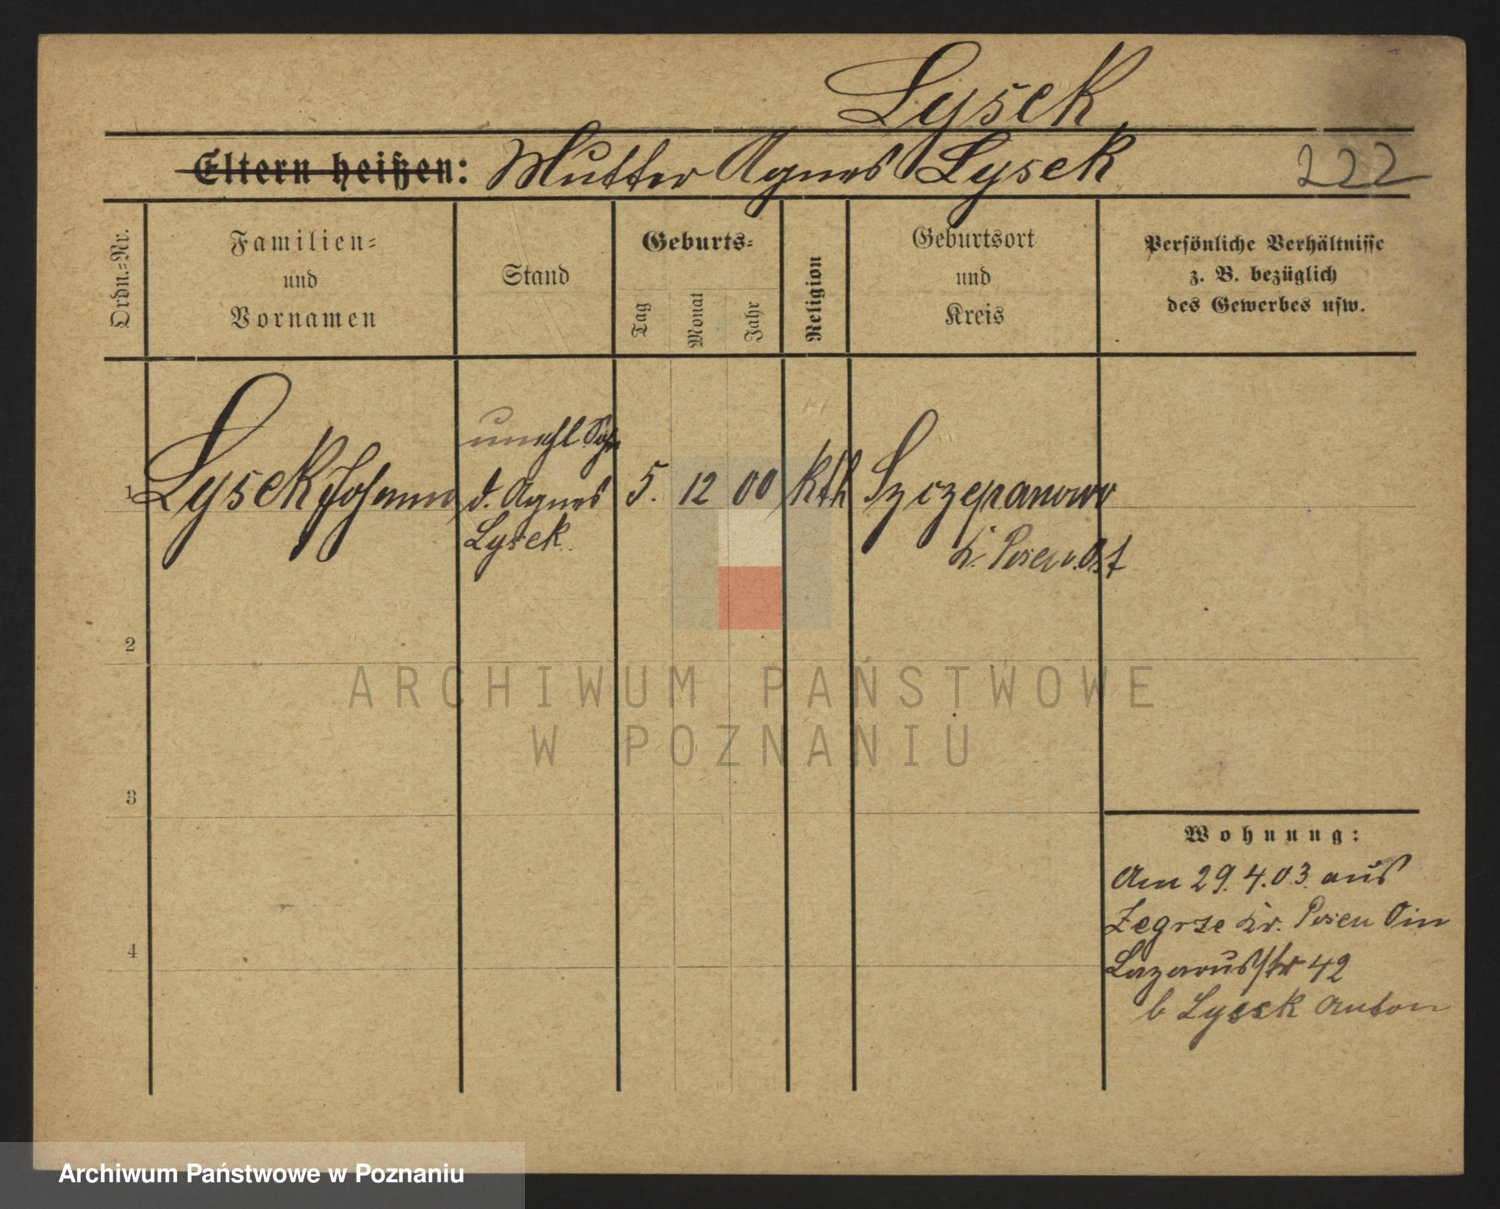 Lysek
Eltern heißen: Mutter Agnes Lysek
222
Ordn.-Nr.
Familien-
und
Vornamen
Stand
Geburts-
Tag
Monat
Jahr
Religion
Geburtsort
und
Kreis
Persönliche Verhältnisse
z. B. bezüglich
des Gewerbes usw.
1 Lysek Johann
unehl Sohn
d. Agnes
Lysek
5. 12 00 kth Szczepanowo
Kr. Posen Ost
2
ARCHIWUM PAŃSTWOWE
W POZNANIU
3
Wohnung:
Am 29.4.03. aus
Zegrze Kr. Posen
Lazarusstr 42
b Lysek Anton
4
Archiwum Państwowe w Poznaniu